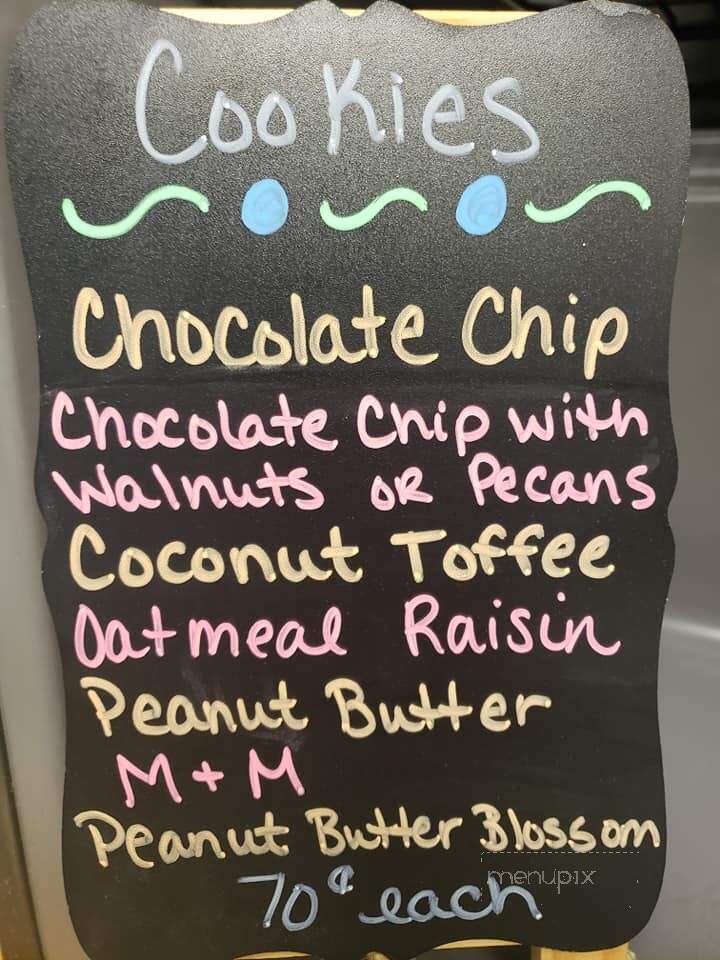 Cookies
Chocolate Chip
Chocolate Chip with
Walnuts OR Pecans
Coconut Toffee
Oatmeal Raisin
Peanut Butter
M + M
Peanut Butter Blossom
70¢ each
menupix